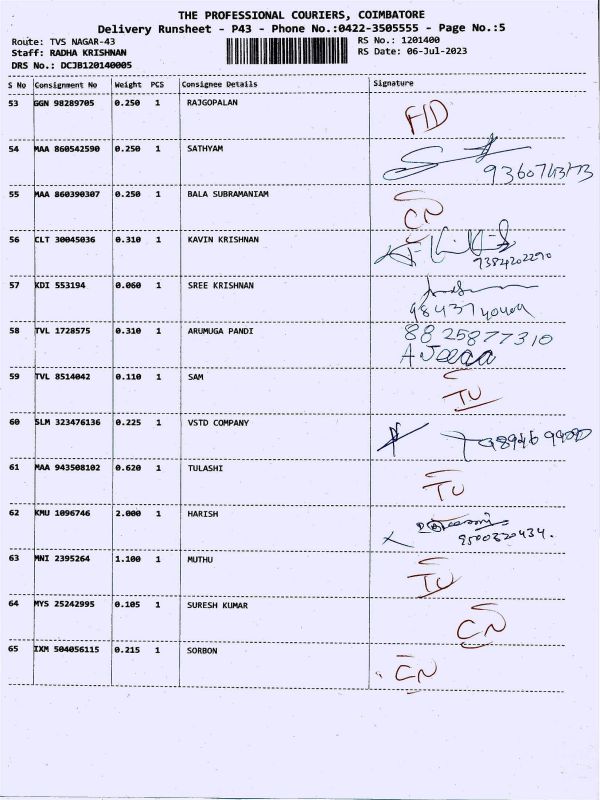 THE PROFESSIONAL COURIERS, COIMBATORE
Delivery Runsheet - P43 - Phone No.:0422-3505555 - Page No.:5
Route: TVS NAGAR-43
Staff: RADHA KRISHNAN
DRS No.: DCJB120140005
RS No.: 1201400
RS Date: 06-Jul-2023
S No Consignment No Weight PCS Consignee Details Signature
53 GGN 98289705 0.250 1 RAJGOPALAN FID
54 MAA 860542590 0.250 1 SATHYAM
55 MAA 860390307 0.250 1 BALA SUBRAMANIAM CN
56 CLT 30045036 0.310 1 KAVIN KRISHNAN
9384202290
57 KDI 553194 0.060 1 SREE KRISHNAN
9843740409
58 TVL 1728575 0.310 1 ARUMUGA PANDI 8825877310
59 TVL 8514042 0.110 1 SAM TU
60 SLM 323476136 0.225 1 VSTD COMPANY
61 MAA 943508102 0.620 1 TULASHI TU
62 KMU 1096746 2.000 1 HARISH
9500320434.
63 MNI 2395264 1.100 1 MUTHU TU
64 MYS 25242995 0.105 1 SURESH KUMAR CN
65 IXM 504056115 0.215 1 SORBON CN